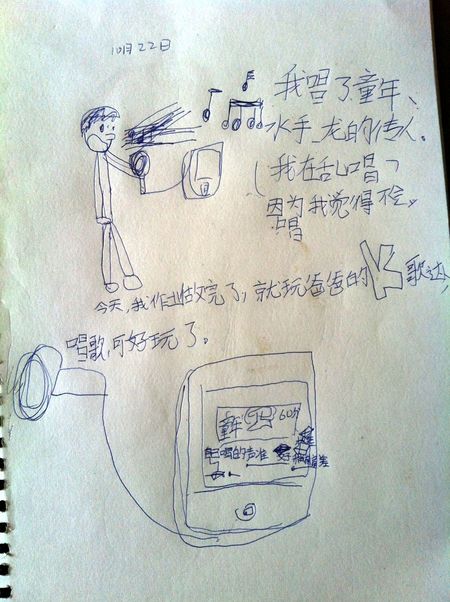 10月22日
我唱了童年、
水手、龙的传人。
(我在乱唱
因为我觉得不会
唱
今天,我作业做完了,就玩爸爸的K歌达人,
唱歌,可好玩了。
童年 60分
唱的声准